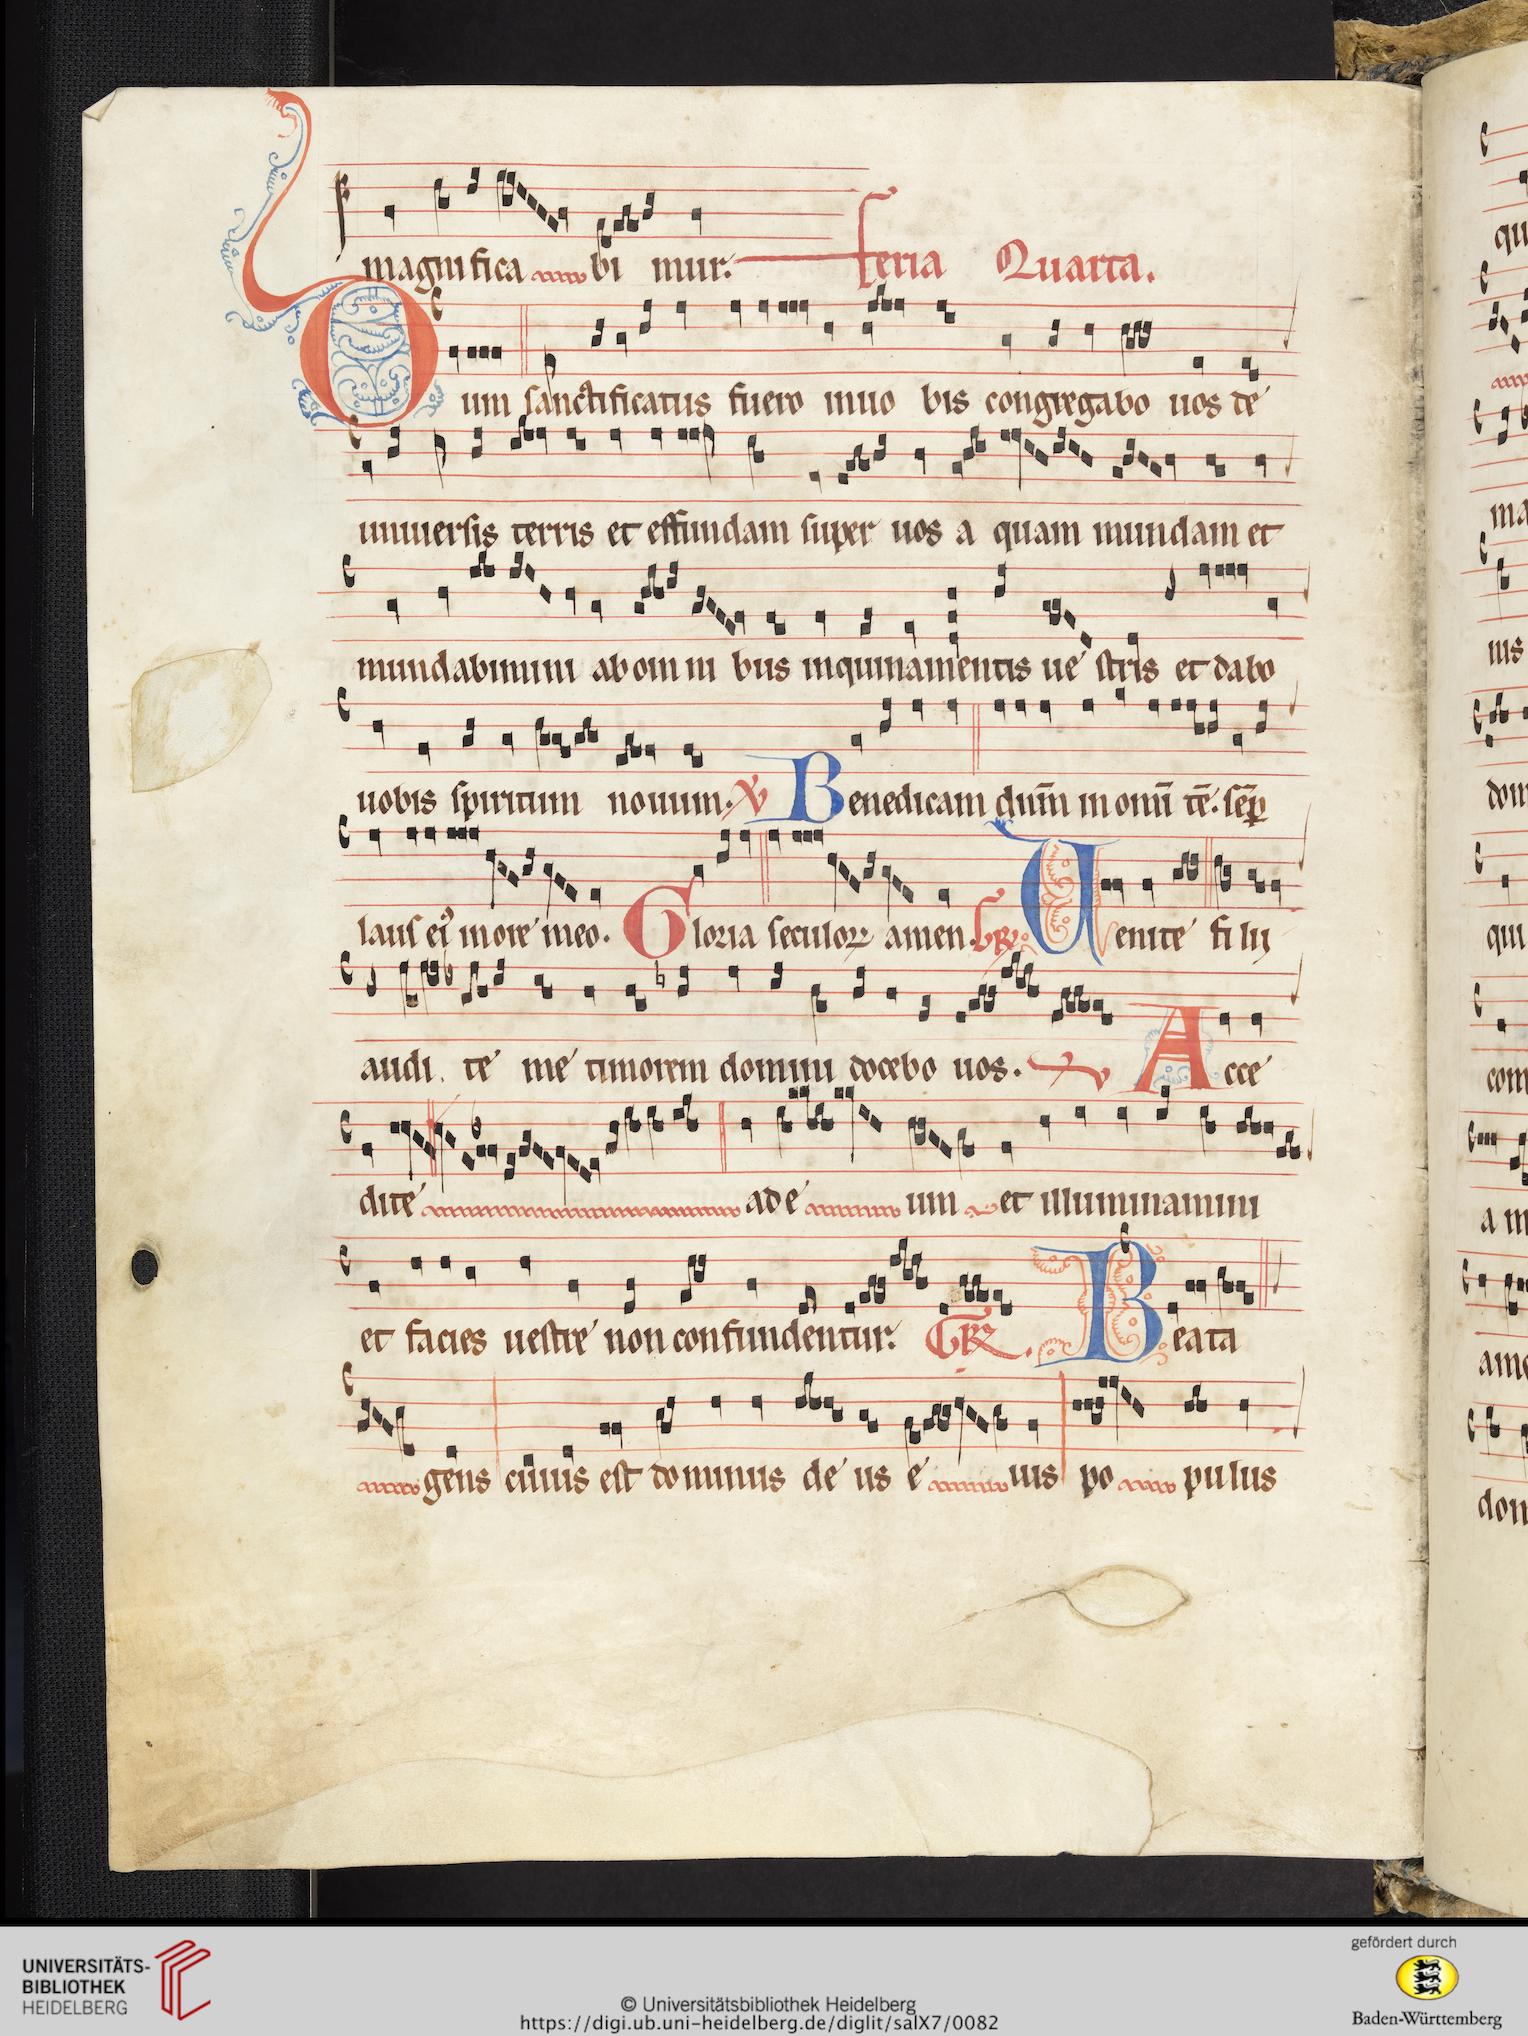 magnifica bi mur. feria Quarta.
Cum sanctificatus fuero in uo bis congregabo uos de
uniuersis terris et effundam super uos a quam mundam et
mundabimini ab om ni bus inquinamentis ue stris et dabo
uobis spiritum nouum. V Benedicam dnm̄ in omī tē. sēp
laus ei⁹ in ore meo. Gloria seculoꝝ amen. Gr̄. Venite fi lij
audi te me timorem domini docebo uos. V Acce
dite ad e um et illuminamini
et facies uestre non confundentur. Gr̄. Beata
gens cuius est dominus de us e ius po pulus
qu
ma
nis
dom
qui
com
a m
ame
dom
UNIVERSITÄTS-
BIBLIOTHEK
HEIDELBERG
© Universitätsbibliothek Heidelberg
https://digi.ub.uni-heidelberg.de/diglit/salX7/0082
gefördert durch
Baden-Württemberg